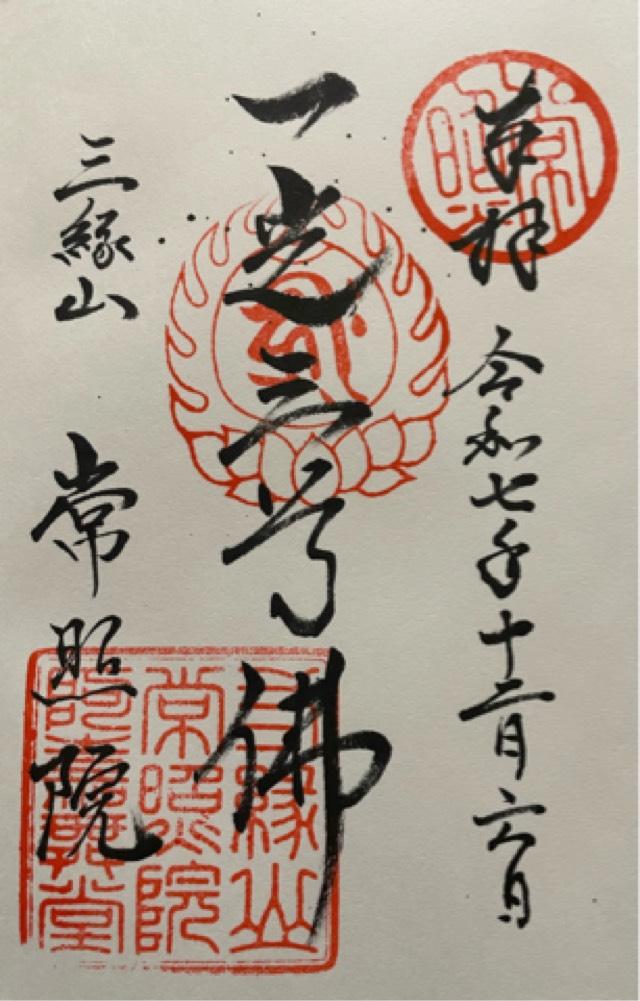 奉拝 令和七年十二月六日
一光三尊佛
三縁山 常照院
常照
三縁山
常照院